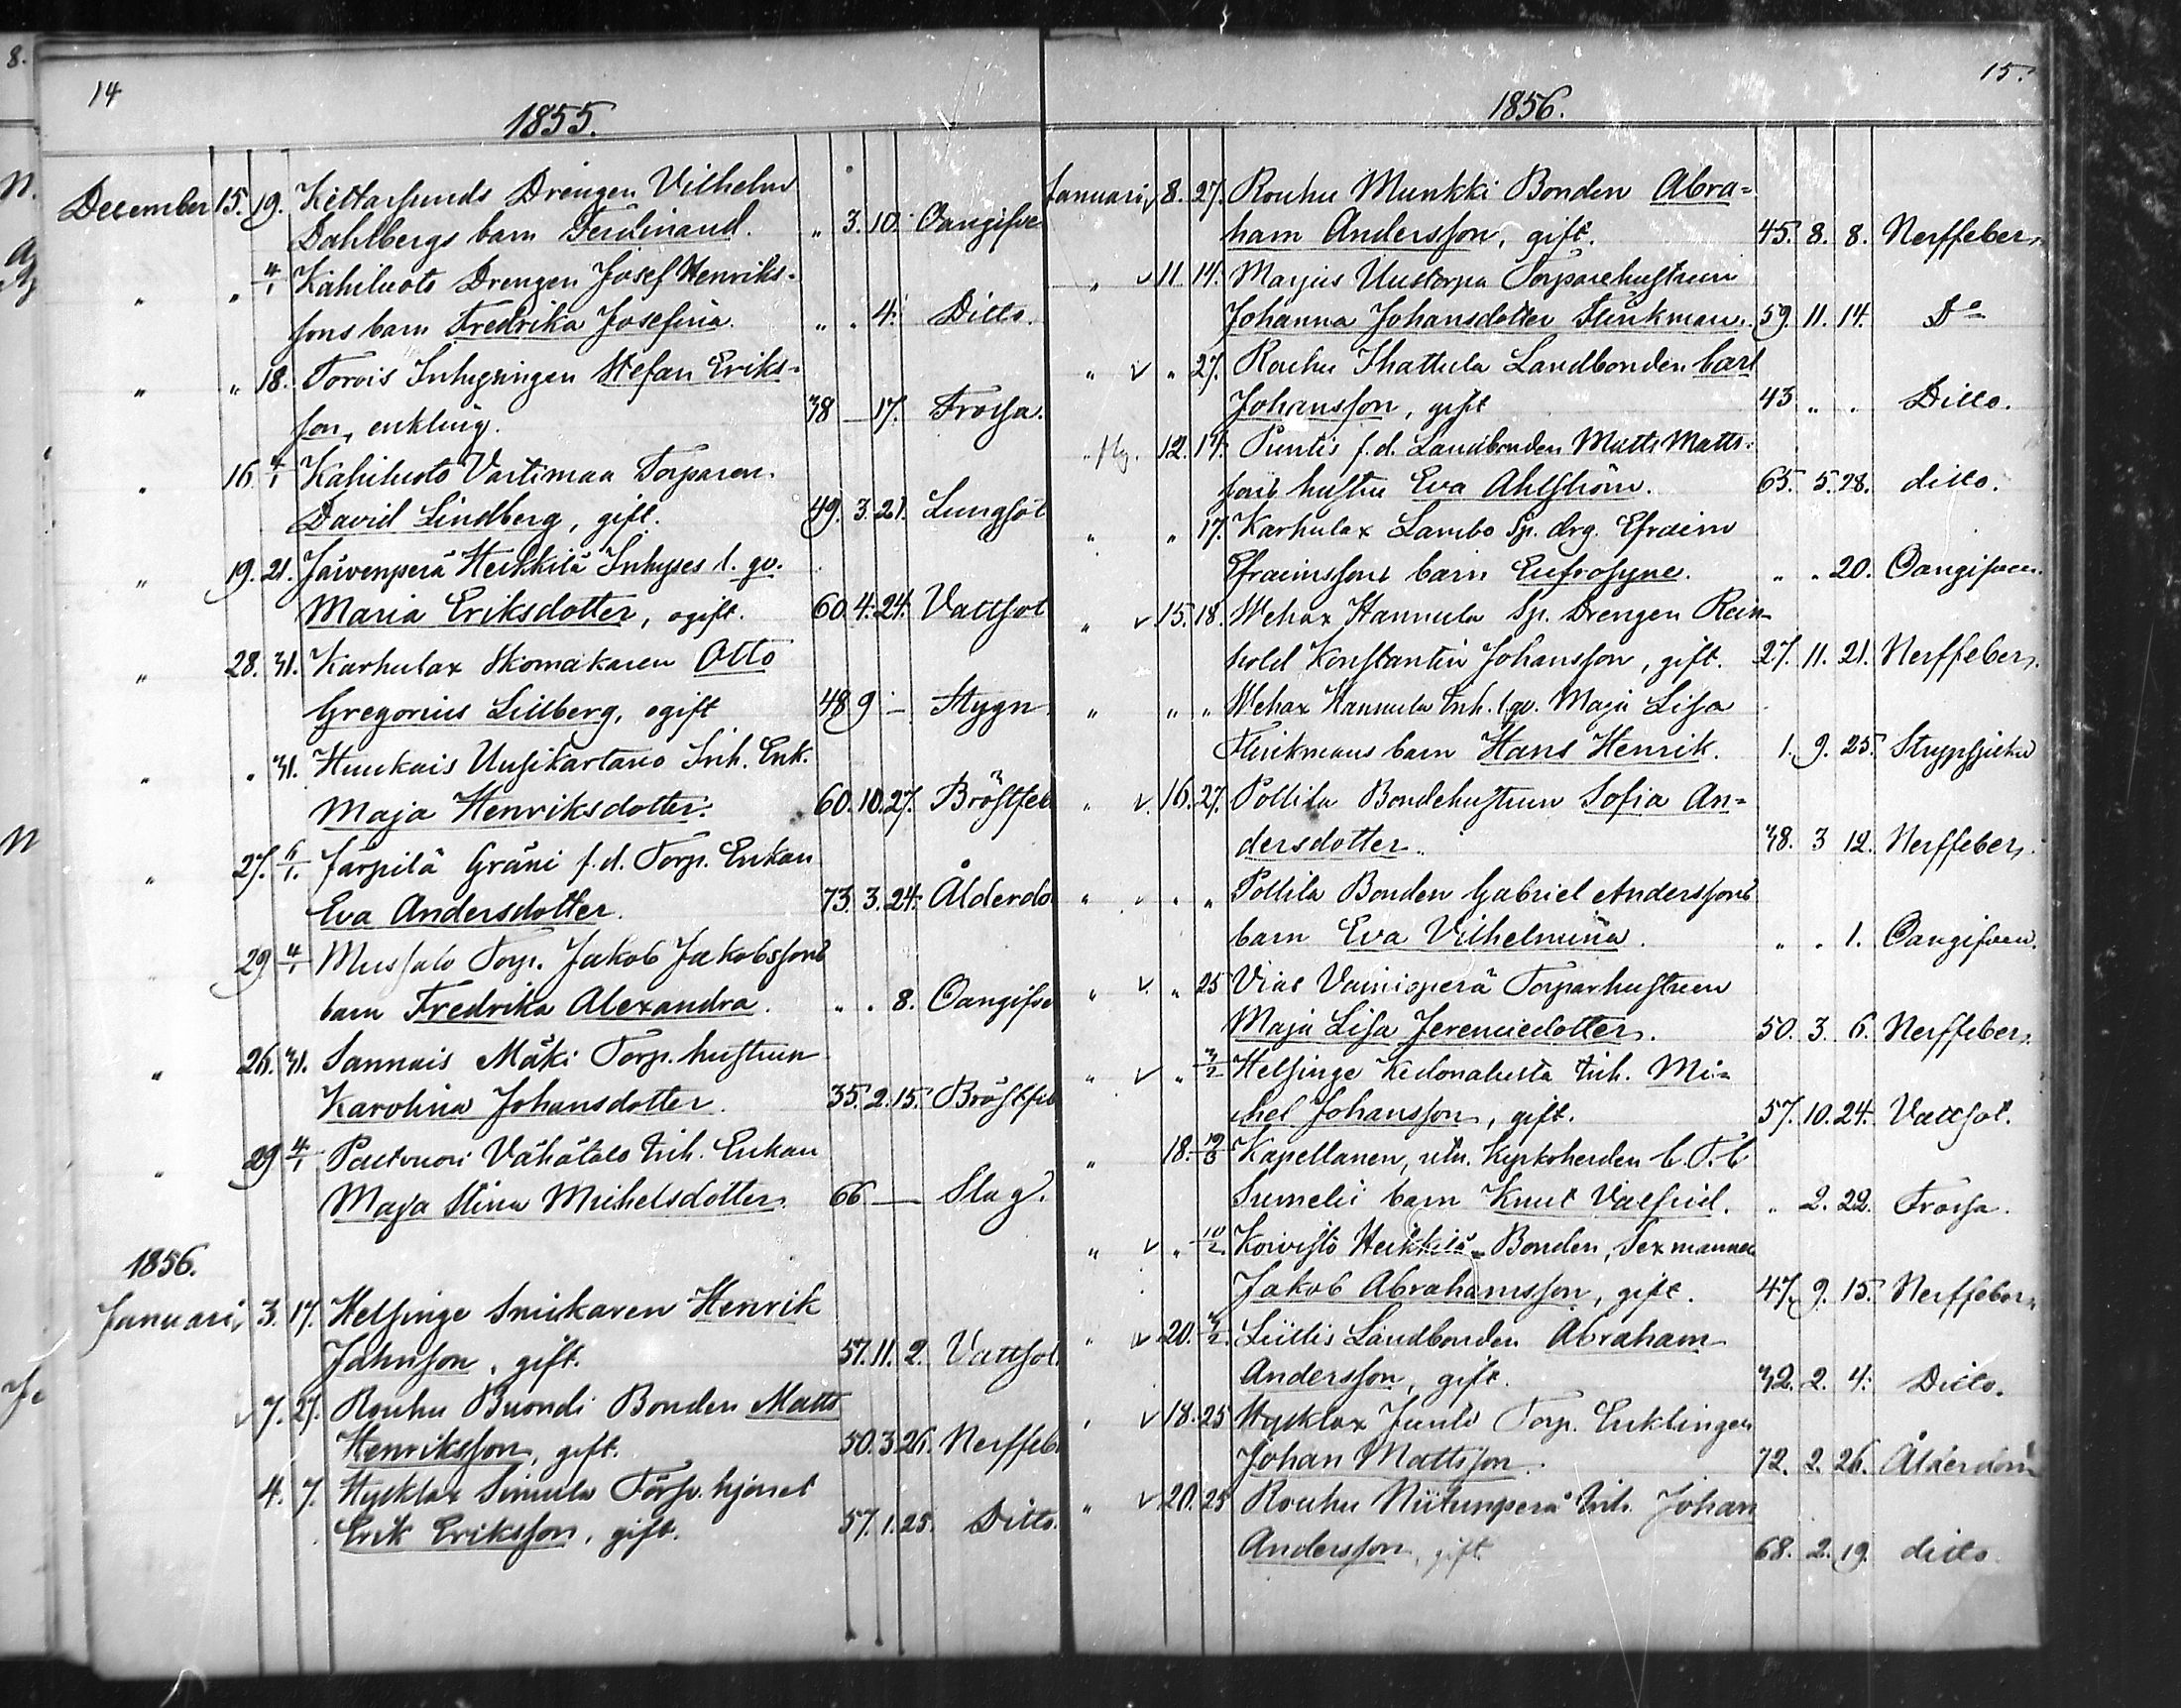 14
1855.
December 15. 19. Kettarsunds Drengen Vilhelm
Dahlbergs barn Ferdinand. " 3. 10. Oangifve
" " 4/1 Kahiluoto Drengen Josef Henriks-
sons barn Fredrika Josefina. " . 4. Ditto.
" " 18. Torois Inhysingen Stefan Eriks-
son, enkling. 38 — 17. Trossa.
" 16. 4/1 Kahiluoto Vartimaa Torparen
David Lindberg, gift. 49. 3. 21. Lungsot
" 19. 21. Järvenperä Heikkilä Inhyses l. qv.
Maria Eriksdotter, ogift. 60. 4. 24. Vattsot
" 28. 31. Karhulax Skomakaren Otto
Gregorius Lillberg, ogift 48 9 — Stygn
" " 31. Huukais Uusikartano Inh. Enk.
Maja Henriksdotter. 60. 10. 27. Bröstfeb
" 27. 6/1 Järpilä Gräni f.d. Torp. Enkan
Eva Andersdotter. 73. 3. 24. Ålderdo
" 29 4/1 Mussalo Torp. Jakob Jakobssons
barn Fredrika Alexandra. " . 8. Oangifve
" 26. 31. Sannais Mäki Torp. hustrun
Karolina Johansdotter. 35. 2. 15. Bröstfeb
" 29 4/1 Vähätalo Inh. Enkan
Maja Stina Michelsdotter. 66 — Slag.
1856.
Januari, 3. 17. Helsinge Snickaren Henrik
Johnson, gift. 57. 11. 2. Vattsot
v 7. 27. Rouhu Buondi Bonden Matts
Henriksson, gift. 50. 3 26. Nerffeb
4. 7. Hycklax Simula Försv. hjonet
Erik Eriksson, gift. 57. 1. 25. Ditto.
15.
1856.
Januari, 8. 27. Rouhu Munkki Bonden Abra-
ham Andersson, gift. 45. 8. 8. Nerffeber,
" v 11 14. Marjus Uustorpa Torparehustrun
Johanna Johansdotter Flinkman. 59. 11. 14. Do
" v " 27. Rouhu Ihattula Landbonden Carl
Johansson, gift 43 " . Ditto.
" 12. 14. Puntis f.d. Landbonden Matts Matts-
sons hustru Eva Ahlström. 65. 5. 28. ditto.
" " 17. Karhulax Lambo Sp. drg. Efraim
Efraimssons barn Eufrosyne. " . 20. Oangifven.
" v 15. 18. Wehax Hannula Sp. Drengen Rein-
hold Konstantin Johansson, gift. 27. 11. 21. Nerffeber,
" " " Wehax Hannula Inh. l.qv. Maja Lisa
Flinkmans barn Hans Henrik. 1. 9. 25. Strypsjuka
" v. 16. 27. Pollila Bondehustrun Sofia An-
dersdotter. 38. 3 12. Nerffeber,
" " " Pollila Bonden Gabriel Anderssons
barn Eva Vilhelmina. " . 1. Oangifven.
" v. " 25 Vias Vainioperä Torparhustrun
Maja Lisa Jeremiedotter. 50. 3. 6. Nerffeber,
" v " 3/2 Helsinge Kedonalusta Inh. Mi-
chel Johansson, gift. 57. 10. 24. Vattsot.
" 18. Kapellanen, utn. Kyrkoherden C. T. C
Sumelii barn Knut Valfrid. " 2. 22. Trossa.
" v " 10/2 Koivisto Heikkilä Bonden, Sexmannen
Jakob Abrahamsson, gift. 47. 9. 15. Nerffeber,
" v 20. 3/2. Liitlis Landbonden Abraham
Andersson, gift. 32. 2. 4. Ditto.
" v 18. 25 Hycklax Juulo Torp. Enklingen
Johan Mattsson. 72. 2. 26. Ålderdom
" v 20. 25 Rouhu Niitunperä Inh. Johan
Andersson, gift. 68. 2. 19. ditto